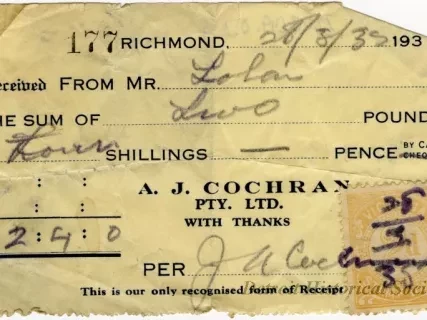 177 RICHMOND, 28/3/35 193
eceived FROM MR.
HE SUM OF Two POUND
Four SHILLINGS — PENCE BY CA
CHEQ
A. J. COCHRAN
PTY. LTD.
WITH THANKS
2 : 4 : 0
PER J A Coc
This is our only recognised form of Receipt
Historical Soci